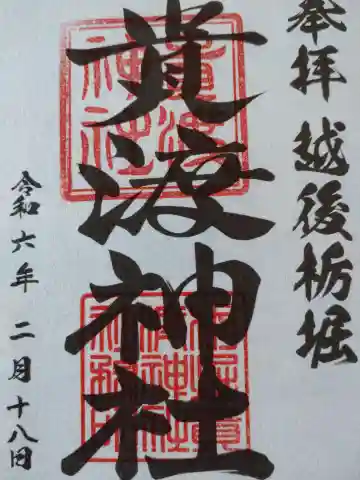 奉拝 越後栃堀
貴渡神社
令和六年 二月十八日